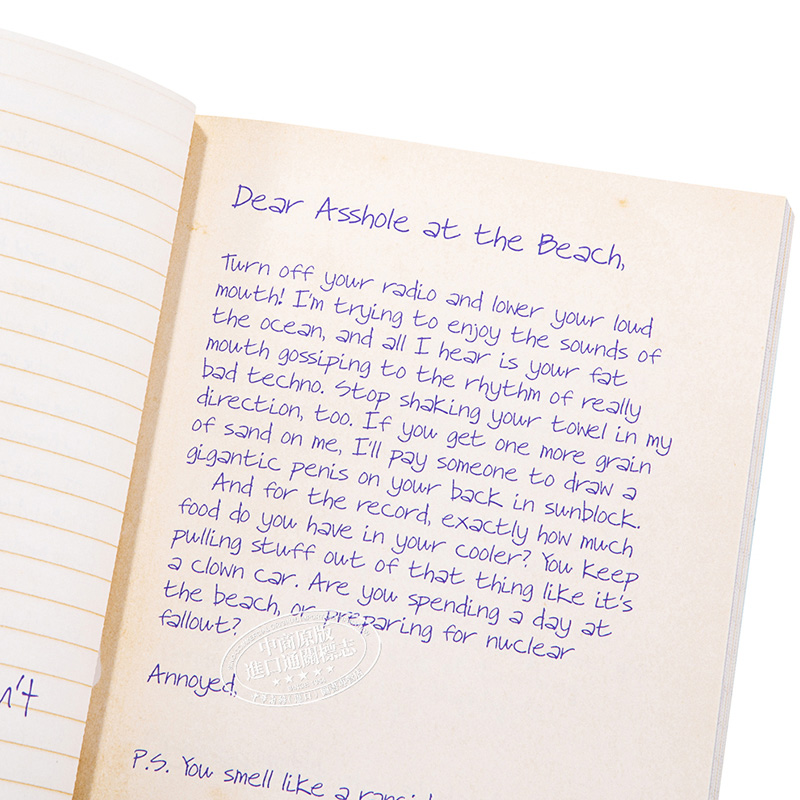 Dear Asshole at the Beach,
Turn off your radio and lower your loud
mouth! I'm trying to enjoy the sounds of
the ocean, and all I hear is your fat
mouth gossiping to the rhythm of really
bad techno. Stop shaking your towel in my
direction, too. If you get one more grain
of sand on me, I'll pay someone to draw a
gigantic penis on your back in sunblock.
And for the record, exactly how much
food do you have in your cooler? You keep
pulling stuff out of that thing like it's
a clown car. Are you spending a day at
the beach or preparing for nuclear
fallout?
Annoyed,
P.S. You smell like a
中商原版
進口通關標志